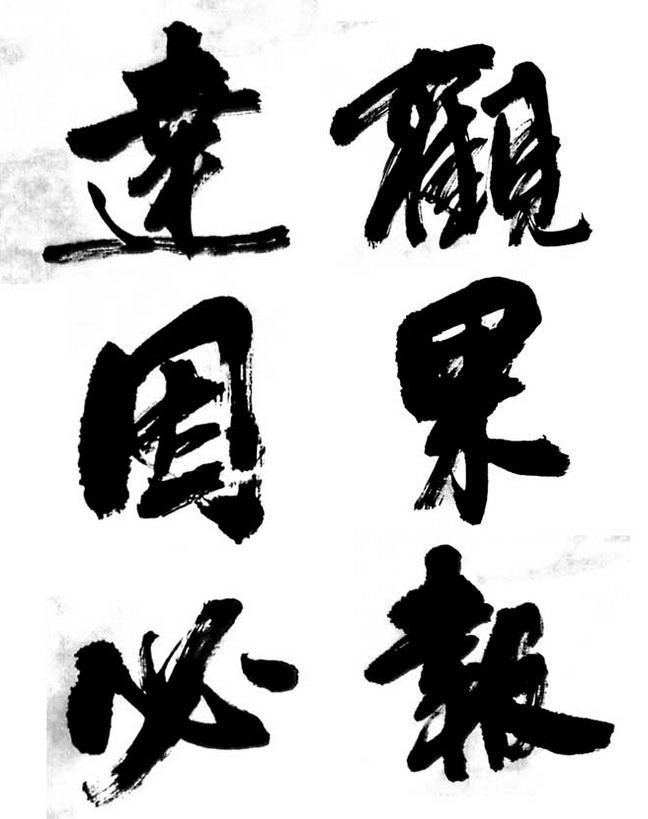 達觀
因果
必報